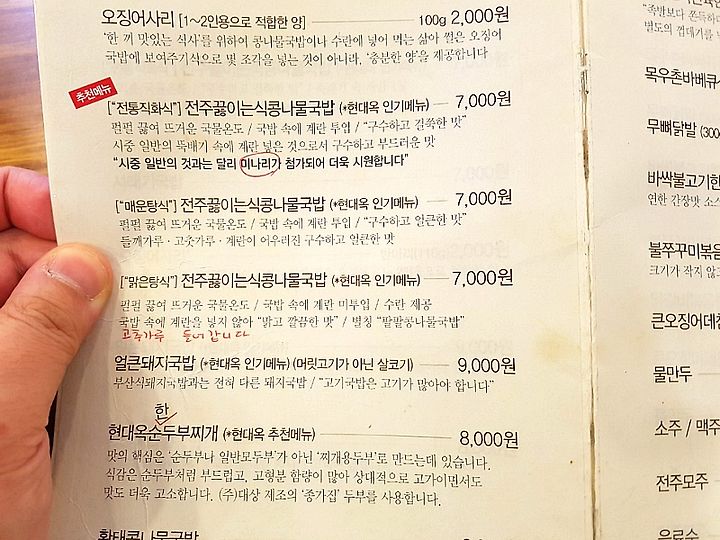 오징어사리 [1~2인용으로 적합한 양] 100g 2,000원
'한 끼 맛있는 식사'를 위하여 콩나물국밥이나 수란에 넣어 먹는 삶아 썰은 오징어
국밥에 보여주기식으로 몇 조각을 넣는 것이 아니라, '충분한 양'을 제공합니다
추천메뉴
["전통직화식"] 전주끓이는식콩나물국밥 (*현대옥 인기메뉴) 7,000원
펄펄 끓여 뜨거운 국물온도 / 국밥 속에 계란 투입 / "구수하고 걸쭉한 맛"
시중 일반의 뚝배기 속에 계란 넣은 것으로서 구수하고 부드러운 맛
"시중 일반의 것과는 달리 미나리가 첨가되어 더욱 시원합니다"
["매운탕식"] 전주끓이는식콩나물국밥 (*현대옥 인기메뉴) 7,000원
펄펄 끓여 뜨거운 국물온도 / 국밥 속에 계란 투입 / "구수하고 얼큰한 맛"
들깨가루·고춧가루·계란이 어우러진 구수하고 얼큰한 맛
["맑은탕식"] 전주끓이는식콩나물국밥 (*현대옥 인기메뉴) 7,000원
펄펄 끓여 뜨거운 국물온도 / 국밥 속에 계란 미투입 / 수란 제공
국밥 속에 계란을 넣지 않아 "맑고 깔끔한 맛" / 별칭 "팔팔콩나물국밥"
고추가루 들어갑니다
얼큰돼지국밥 (*현대옥 인기메뉴) (머릿고기가 아닌 살코기) 9,000원
부산식돼지국밥과는 전혀 다른 돼지국밥 / "고기국밥은 고기가 많아야 합니다"
한
현대옥순두부찌개 (*현대옥 추천메뉴) 8,000원
맛의 핵심은 '순두부나 일반모두부'가 아닌 '찌개용두부'로 만드는데 있습니다.
식감은 순두부처럼 부드럽고, 고형분 함량이 많아 상대적으로 고가이면서도
맛도 더욱 고소합니다. (주)대상 제조의 '종가집' 두부를 사용합니다.
황태콩나물국밥
"족발보다 쫀득하다
별도의 껍데기를
목우촌바베큐
무뼈닭발 (300
바싹불고기한
연한 간장맛 소스
불쭈꾸미볶음
크기가 작지 않고
큰오징어데침
물만두
소주 / 맥주
전주모주
음료수